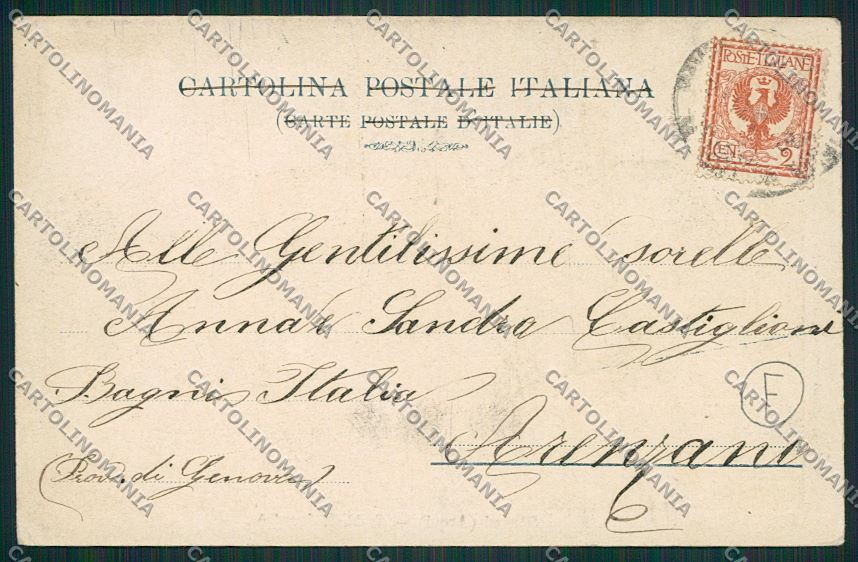 CARTOLINA POSTALE ITALIANA
(CARTE POSTALE D'ITALIE)
POSTE ITALIANE
CEN. 2
Alle Gentilissime sorelle
Anna e Sandra Castiglioni
Bagni Italia
F
Arenzano
(Prov. di Genova)
CARTOLINOMANIA